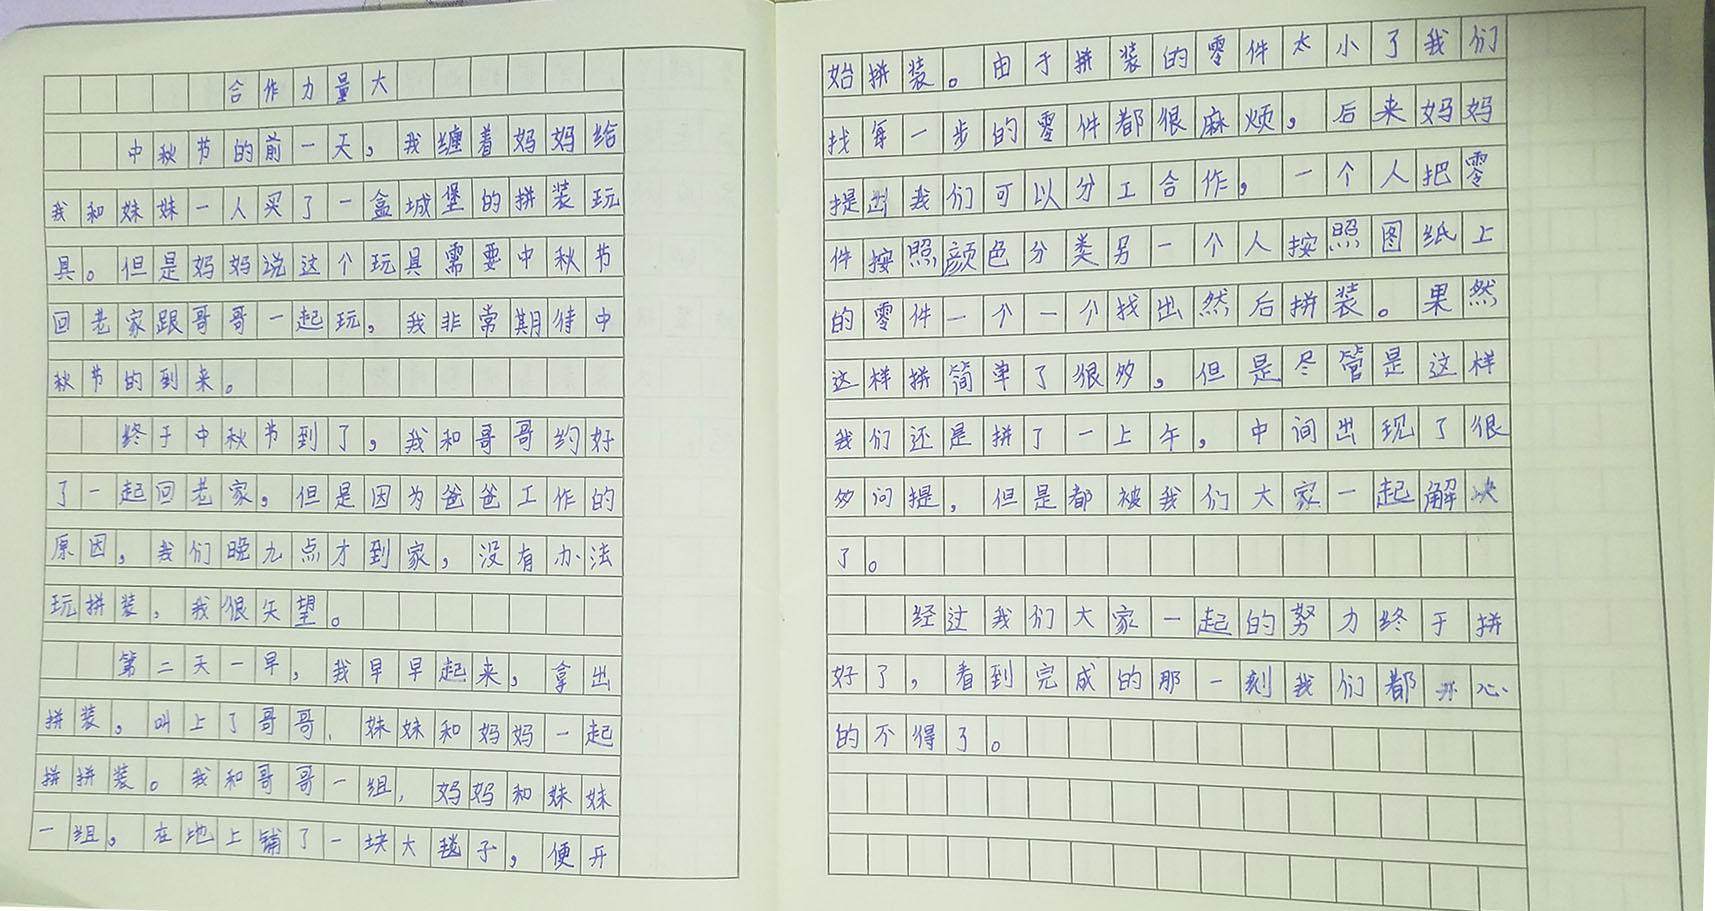 合作力量大
中秋节的前一天，我缠着妈妈给
我和妹妹一人买了一盒城堡的拼装玩
具。但是妈妈说这个玩具需要中秋节
回老家跟哥哥一起玩，我非常期待中
秋节的到来。
终于中秋节到了，我和哥哥约好
了一起回老家，但是因为爸爸工作的
原因，我们晚九点才到家，没有办法
玩拼装，我很失望。
第二天一早，我早早起来，拿出
拼装，叫上了哥哥、妹妹和妈妈一起
拼拼装。我和哥哥一组，妈妈和妹妹
一组，在地上铺了一块大毯子，便开
始拼装。由于拼装的零件太小了我们
找每一步的零件都很麻烦，后来妈妈
提出我们可以分工合作，一个人把零
件按照颜色分类另一个人按照图纸上
的零件一个一个找出然后拼装。果然
这样拼简单了很多，但是尽管是这样
我们还是拼了一上午，中间出现了很
多问提，但是都被我们大家一起解决
了。
经过我们大家一起的努力终于拼
好了，看到完成的那一刻我们都开心
的不得了。